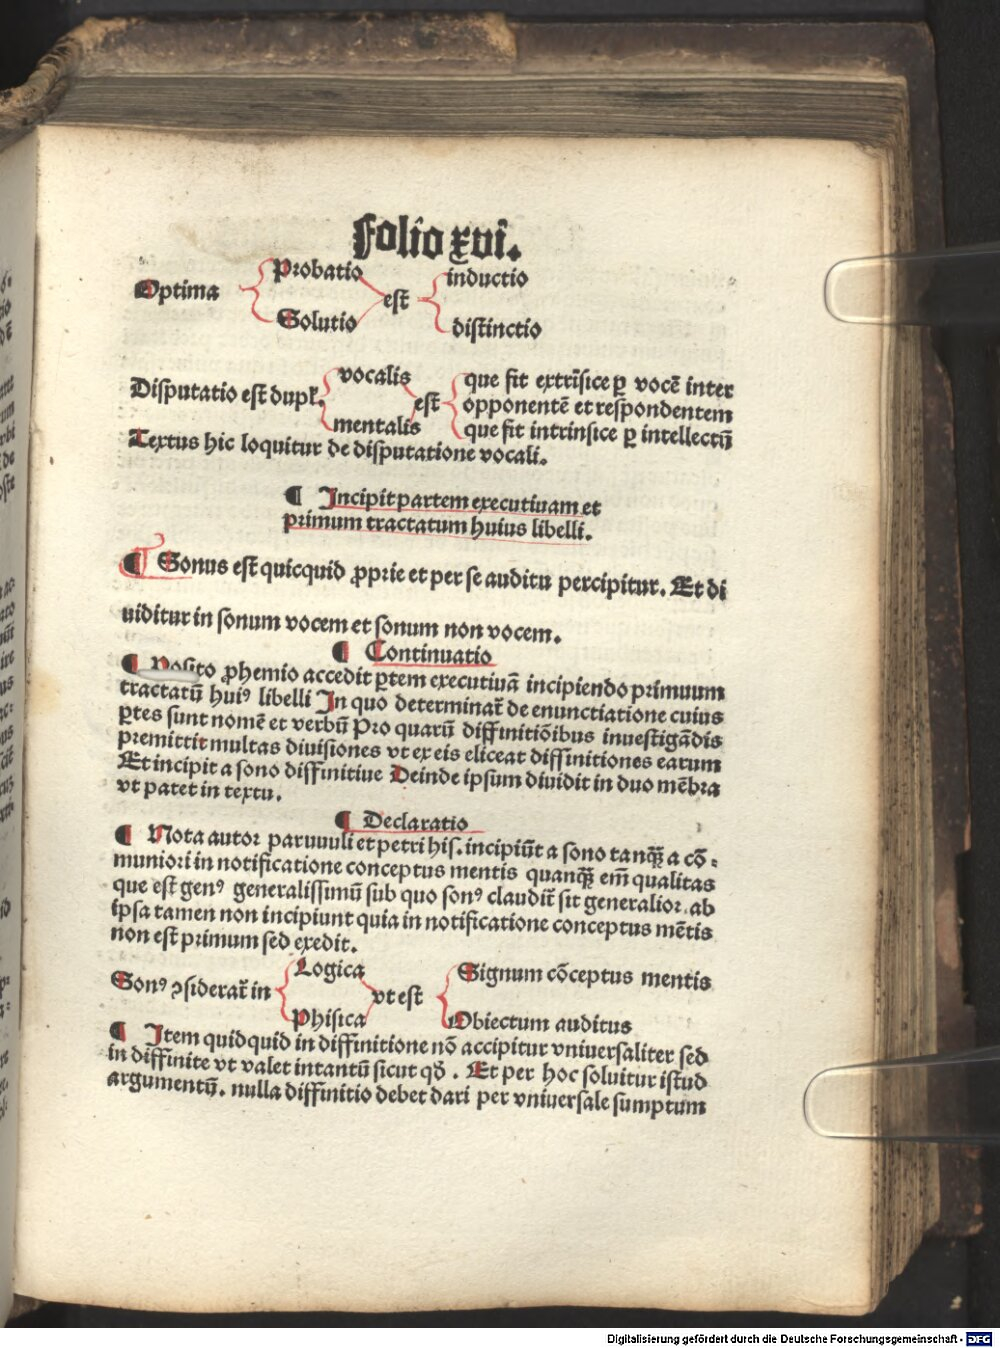 Folio xvi.
Optima Probatio est inductio
Solutio distinctio
Disputatio est dupl̄. vocalis est que fit extrīsice ꝑ vocē inter
opponentē et respondentem
mentalis que fit intrinsice ꝑ intellectū
Textus hic loquitur de disputatione vocali.
¶ Incipit partem executiuam et
primum tractatum huius libelli.
¶ Sonus est quicquid ꝓprie et per se auditu percipitur. Et di
uiditur in sonum vocem et sonum non vocem.
¶ Continuatio
¶ Posito ꝓhemio accedit ꝑtem executiuā incipiendo primuum
tractatū huiꝰ libelli In quo determinat᷑ de enunctiatione cuius
ꝑtes sunt nomē et verbū Pro quarū diffinitiōibus inuestigādis
premittit multas diuisiones vt ex eis eliceat diffinitiones earum
Et incipit a sono diffinitiue Deinde ipsum diuidit in duo mēbra
vt patet in textu.
¶ Declaratio
¶ Nota autor paruuuli et petri his. incipiūt a sono tanqȝ̄ a cō-
muniori in notificatione conceptus mentis quanqȝ̄ em̄ qualitas
que est genꝰ generalissimū sub quo sonꝰ claudit᷑ sit generalior. ab
ipsa tamen non incipiunt quia in notificatione conceptus mētis
non est primum sed exedit.
Sonꝰ ꝯsiderat᷑ in Logica vt est Signum cōceptus mentis
Phisica Obiectum auditus
¶ Item quidquid in diffinitione nō accipitur vniuersaliter sed
in diffinite vt valet intantū sicut qō. Et per hoc soluitur istud
argumentū. nulla diffinitio debet dari per vniuersale sumptum
Digitalisierung gefördert durch die Deutsche Forschungsgemeinschaft - DFG